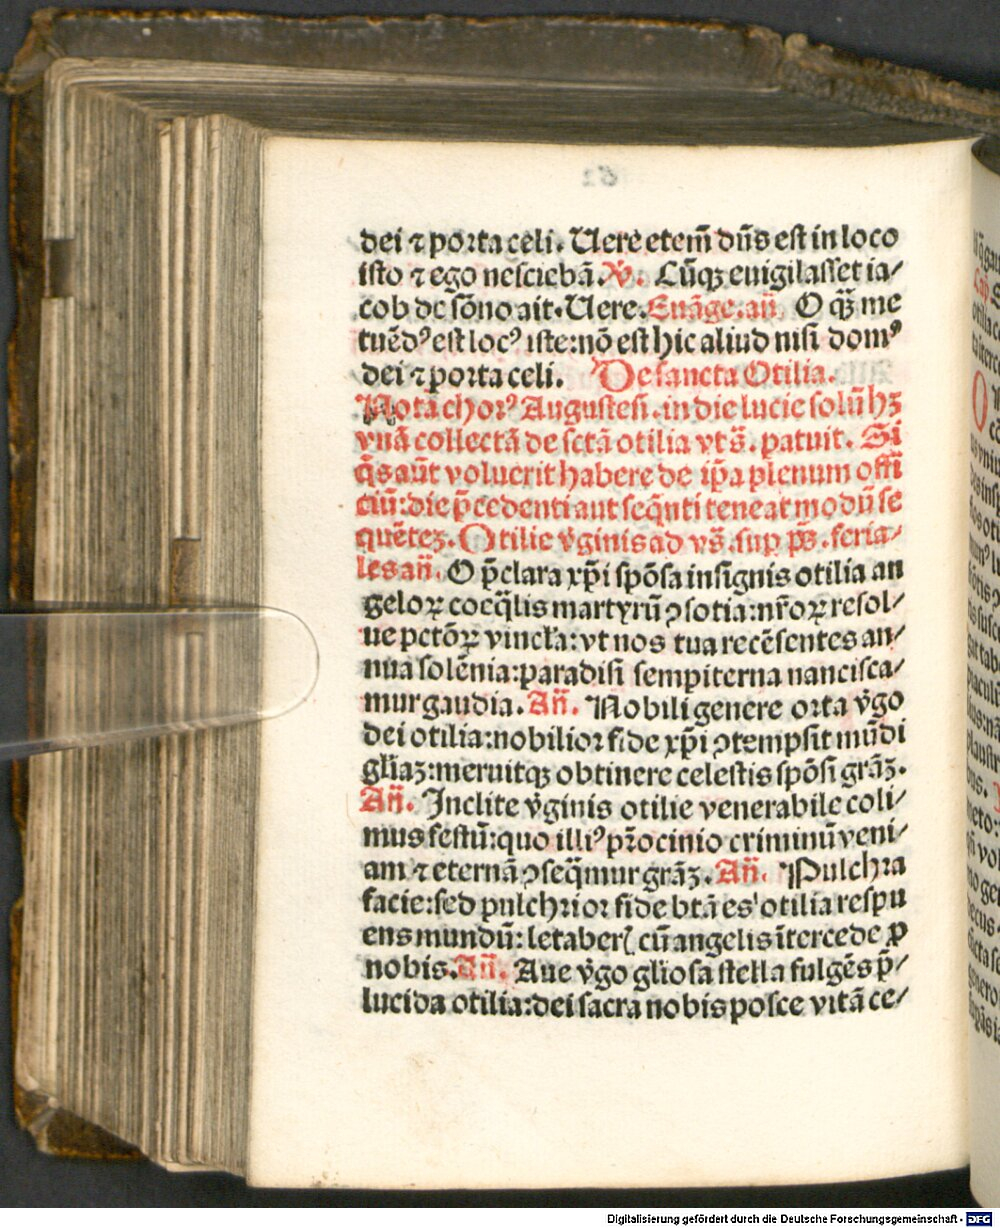 dei ⁊ porta celi. Uere etem̄ dn̄s est in loco
isto ⁊ ego nesciebā. V̄. Cūqꝫ euigilasset ia/
cob de sōno ait. Uere. Euāge. an̄. O qꝫ̄ me
tuēdꝰ est locꝰ iste: nō est hic aliud nisi domꝰ
dei ⁊ porta celi. De sancta Otilia.
Nota chorꝰ Augusten̄. in die lucie solū hꝫ
vnā collectā de sctā otilia vt s̄. patuit. Si
q̄s aūt voluerit habere de ip̄a plenum offi
ciū: die p̄cedenti aut seq̄nti teneat modū se
quētē. Otilie v̄ginis ad vs̄. sup ps̄. feria/
les an̄. O p̄clara xp̄i spōsa insignis otilia an
geloꝝ coeq̄lis martyrū ꝯsotia: nr̄oꝝ resol/
ue pctōꝝ vincl̄a: vt nos tua recēsentes an/
nua solēnia: paradisi sempiterna nancisca/
mur gaudia. An̄. Nobili genere orta v̄go
dei otilia: nobilior fide xp̄i ꝯtempsit mūdi
gl̄iaꝫ: meruitqꝫ obtinere celestis spōsi grāꝫ.
An̄. Inclite v̄ginis otilie venerabile coli/
mus festū: quo illiꝰ pr̄ocinio criminū veni/
am ⁊ eternā ꝯseq̄mur grāꝫ. An̄. Pulchra
facie: sed pulchrior fide btā es otilia respu
ens mundū: letaberꝭ cū angelis ītercede ꝓ
nobis. An̄. Aue v̄go gl̄iosa stella fulgēs p̄/
lucida otilia: dei sacra nobis posce vitā ce/
Digitalisierung gefördert durch die Deutsche Forschungsgemeinschaft - DFG